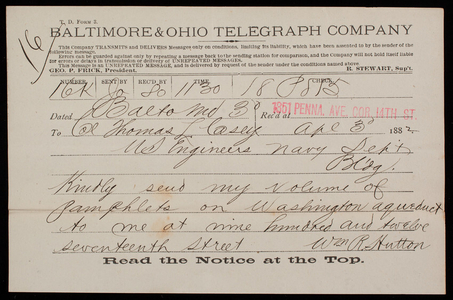 T. D. Form 2.
BALTIMORE & OHIO TELEGRAPH COMPANY
This Company TRANSMITS and DELIVERS Messages only on conditions, limiting its liability, which have been assented to by the sender of the
following message.
Errors can be guarded against only by repeating a message back to the sending station for comparison, and the Company will not hold itself liable
for errors or delays in transmission or delivery of UNREPEATED MESSAGES.
This Message is an UNREPEATED MESSAGE, and is delivered by request of the sender under the conditions named above.
GEO. P. FRICK, President. R. STEWART, Sup't.
16
NUMBER SENT BY REC'D BY TIME CHECK
11 30 18
Dated Balto Md 3d Rec'd at 1351 PENNA. AVE. COR. 14TH ST.
To Col Thomas L Casey Apl 3d 188
US Engineers Navy Dep't
Bldg.
Kindly send my volume of
pamphlets on Washington aqueduct
to me at nine hundred and twelve
seventeenth street Wm R. Hutton
Read the Notice at the Top.